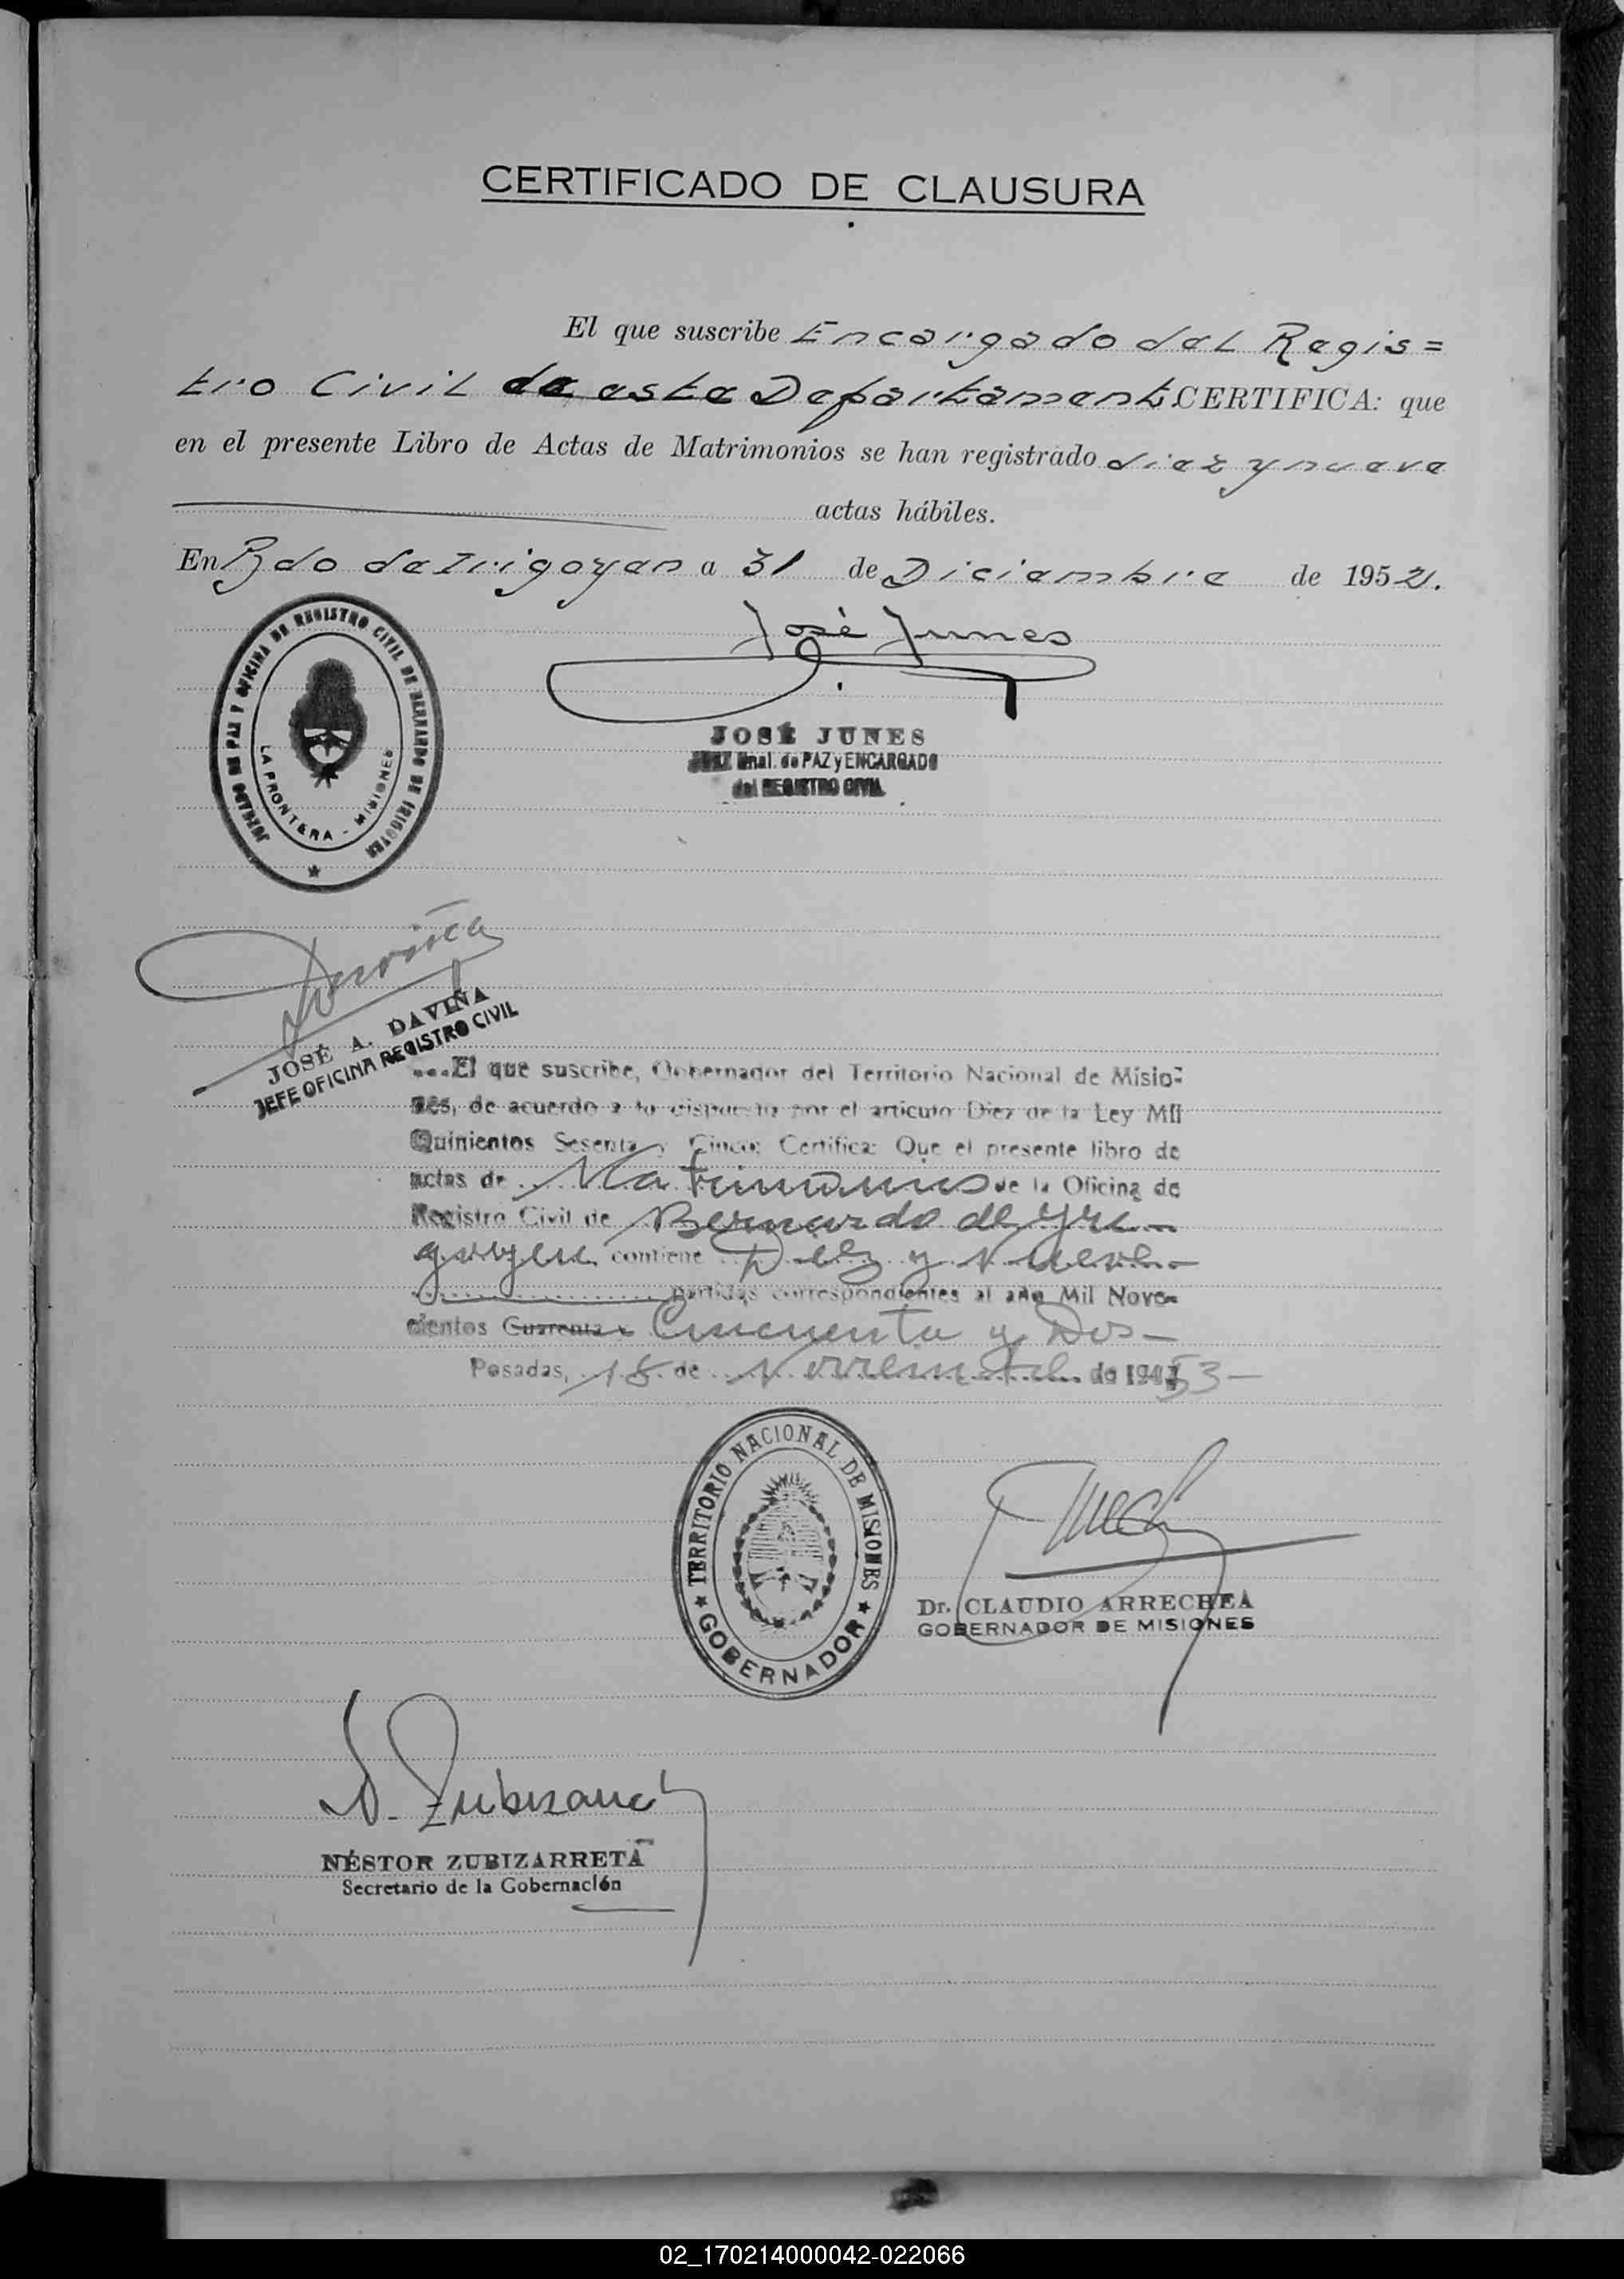 CERTIFICADO DE CLAUSURA
El que suscribe Encargado del Regis=
tro Civil de este Departament CERTIFICA: que
en el presente Libro de Actas de Matrimonios se han registrado diez y nueve
actas hábiles.
En Bdo de Irigoyen a 31 de Diciembre de 1952.
José Junes
JUZGADO DE PAZ Y OFICINA DE REGISTRO CIVIL DE BERNARDO DE IRIGOYEN
LA FRONTERA - MISIONES
JOSÉ JUNES
JUEZ de PAZ y ENCARGADO
del REGISTRO CIVIL
Daviña
JOSÉ A. DAVIÑA
JEFE OFICINA REGISTRO CIVIL
...El que suscribe, Gobernador del Territorio Nacional de Misio-
nes, de acuerdo a lo dispuesto por el artículo Diez de la Ley Mil
Quinientos Sesenta y Cinco; Certifica: Que el presente libro de
actas de Matrimonios de la Oficina de
Registro Civil de Bernardo de Yri-
goyen contiene Diez y Nueve
partidas correspondientes al año Mil Nove-
cientos Cuarenta y Cincuenta y Dos-
Posadas, 18 de Noviembre de 19453-
TERRITORIO NACIONAL DE MISIONES
GOBERNADOR
Dr. CLAUDIO ARRECHEA
GOBERNADOR DE MISIONES
N. Zubizarreta
NÉSTOR ZUBIZARRETA
Secretario de la Gobernación
02_170214000042-022066